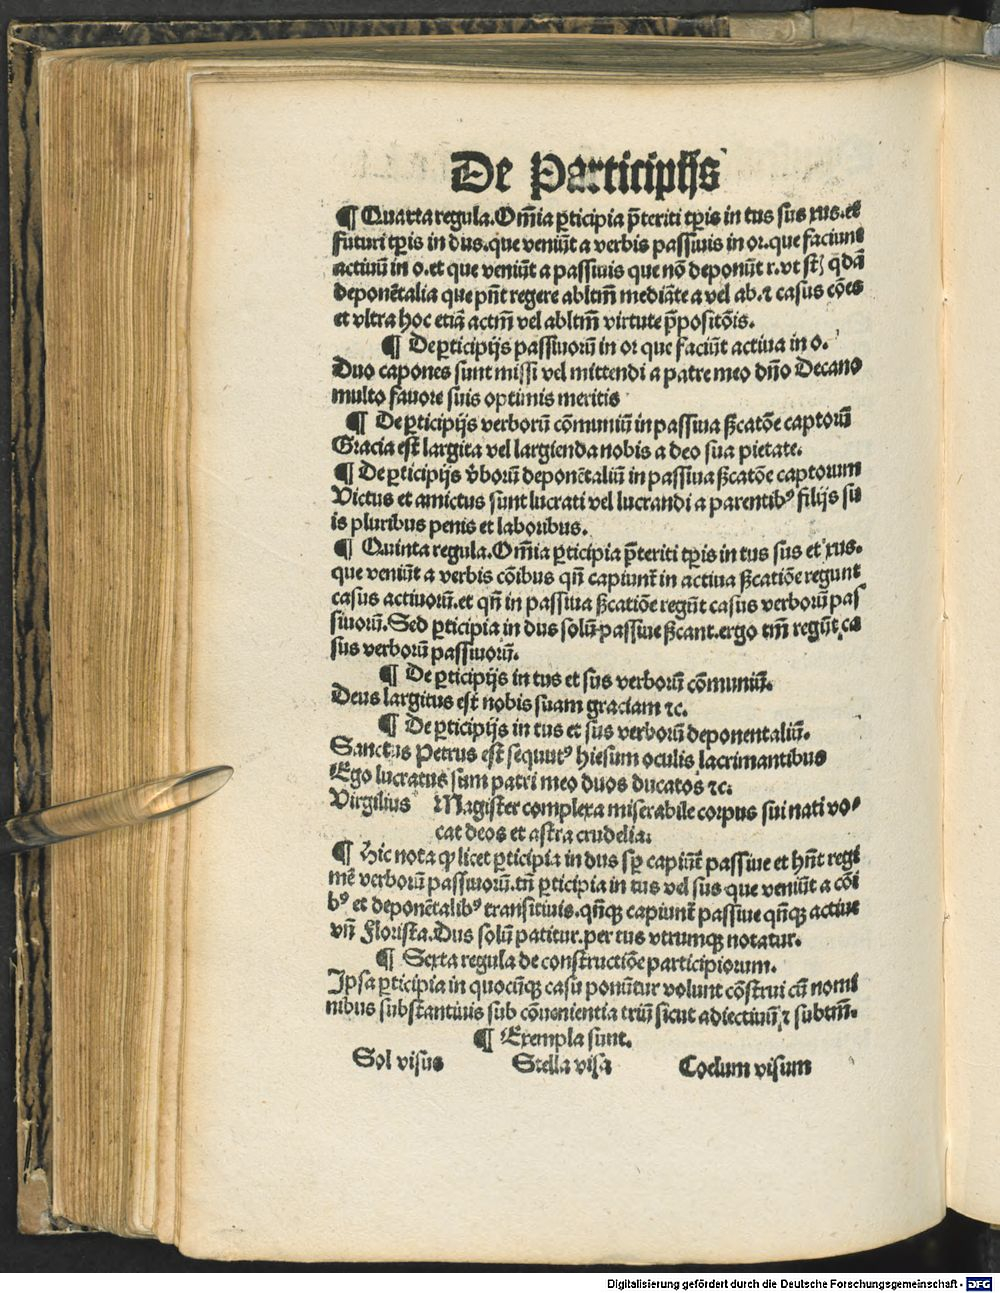 De Participijs
¶ Quarta regula. Om̄ia p̱ticipia p̄teriti tp̱is in tus sus xus. et
futuri tp̱is in dus. que veniūt a verbis passiuis in or. que faciunt
actiuū in o. et que veniūt a passiuis que nō deponūt r. vt st̄ q̄dā
deponētalia que pn̄t regere abltm̄ mediāte a vel ab. ⁊ casus cōes
et vltra hoc etiā actm̄ vel abltm̄ virtute p̄positōis.
¶ De p̱ticipijs passiuorū in or que faciūt actiua in o.
Duo capones sunt missi vel mittendi a patre meo dn̄o Decano
multo fauore suis optimis meritis
¶ De p̱ticipijs verborū cōmuniū in passiua ſ̄catōe captorū
Gracia est largita vel largienda nobis a deo sua pietate.
¶ De p̱ticipijs v̄borū deponētaliū in passiua ſ̄catōe captorum
Victus et amictus sunt lucrati vel lucrandi a parentibꝰ filijs su
is pluribus penis et laboribus.
¶ Quinta regula. Om̄ia p̱ticipia p̄teriti tp̱is in tus sus et xus.
que veniūt a verbis cōibus qn̄ capiunt̄ in actiua ſ̄catiōe regunt
casus actiuorū. et qn̄ in passiua ſ̄catiōe regūt casus verborū pas
siuorū. Sed p̱ticipia in dus solū passiue ſ̄cant. ergo tm̄ regūt ca
sus verborū passiuorū.
¶ De p̱ticipijs in tus et sus verborū cōmuniū.
Deus largitus est nobis suam graciam ⁊c.
¶ De p̱ticipijs in tus et sus verborū deponentaliū.
Sanctus Petrus est sequutꝰ hiesum oculis lacrimantibus
Ego lucratus sum patri meo duos ducatos ⁊c.
Virgilius Magister complexa miserabile corpus sui nati vo⸗
cat deos et astra crudelia.
¶ Hic nota ꝙ licet p̱ticipia in dus sp̱ capiūt̄ passiue et hn̄t regi
mē verborū passiuorū. tn̄ p̱ticipia in tus vel sus que veniūt a cōi
bꝰ et deponētalibꝰ transitiuis. qn̄qꝫ capiunt̄ passiue qn̄qꝫ actiue
vn̄ Florista. Dus solū patitur. per tus vtrumqꝫ notatur.
¶ Sexta regula de constructiōe participiorum.
Ipsa p̱ticipia in quocūqꝫ casu ponūtur volunt cōstrui cū nomi
nibus substantiuis sub cōuenientia triū sicut adiectiuū ⁊ subtm̄.
¶ Exempla sunt.
Sol visus Stella visa Coelum visum
Digitalisierung gefördert durch die Deutsche Forschungsgemeinschaft - DFG